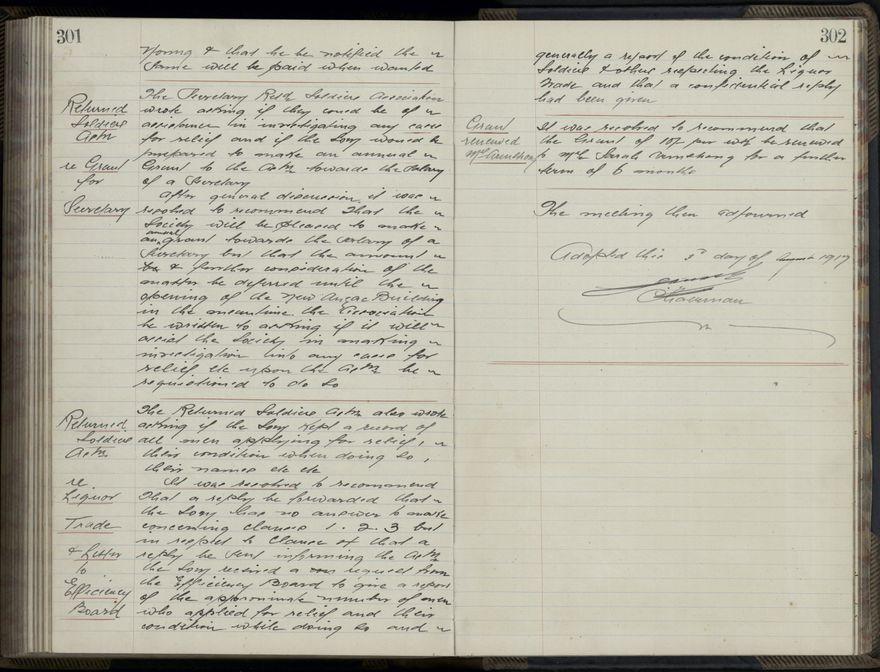 301
Young & that he be notified the
same will be paid when wanted
Returned
Soldiers
Assn
re Grant
for
Secretary
The Secretary Retd Soldiers Association
wrote asking if they could be of
assistance in investigating any cases
for relief and if the Socy would be
prepared to make an annual
Grant to the Assn towards the salary
of a Secretary
After general discussion it was
resolved to recommend that the
Society will be pleased to make
an annual grant towards the salary of a
Secretary but that the amount
& further consideration of the
matter be deferred until the
opening of the New Anzac Building
in the meantime the Association
be written to asking if it will
assist the Society in making
investigation into any cases for
relief etc upon the Assn be
requisitioned to do so
Returned
Soldiers
Assn
re
Liquor
Trade
& Letter
to
Efficiency
Board
The Returned Soldiers Assn also wrote
asking if the Socy kept a record of
all men applying for relief,
their condition when doing so,
their names etc etc
It was resolved to recommend
that a reply be forwarded that
the Socy has no answer to make
concerning clauses 1. 2. 3 but
in respect to Clause 4 that a
reply be sent informing the Assn
the Socy received a request from
the Efficiency Board to give a report
of the approximate number of men
who applied for relief and their
condition while doing so and
302
generally a report of the condition of
Soldiers & others respecting the Liquor
Trade and that a confidential reply
had been given
Grant
renewed
Mrs Armstrong
It was resolved to recommend that
the Grant of 10/- per wk be renewed
to Mrs Sarah Armstrong for a further
term of 6 months
The meeting then adjourned
Adopted this 3rd day of August 1917
Chairman